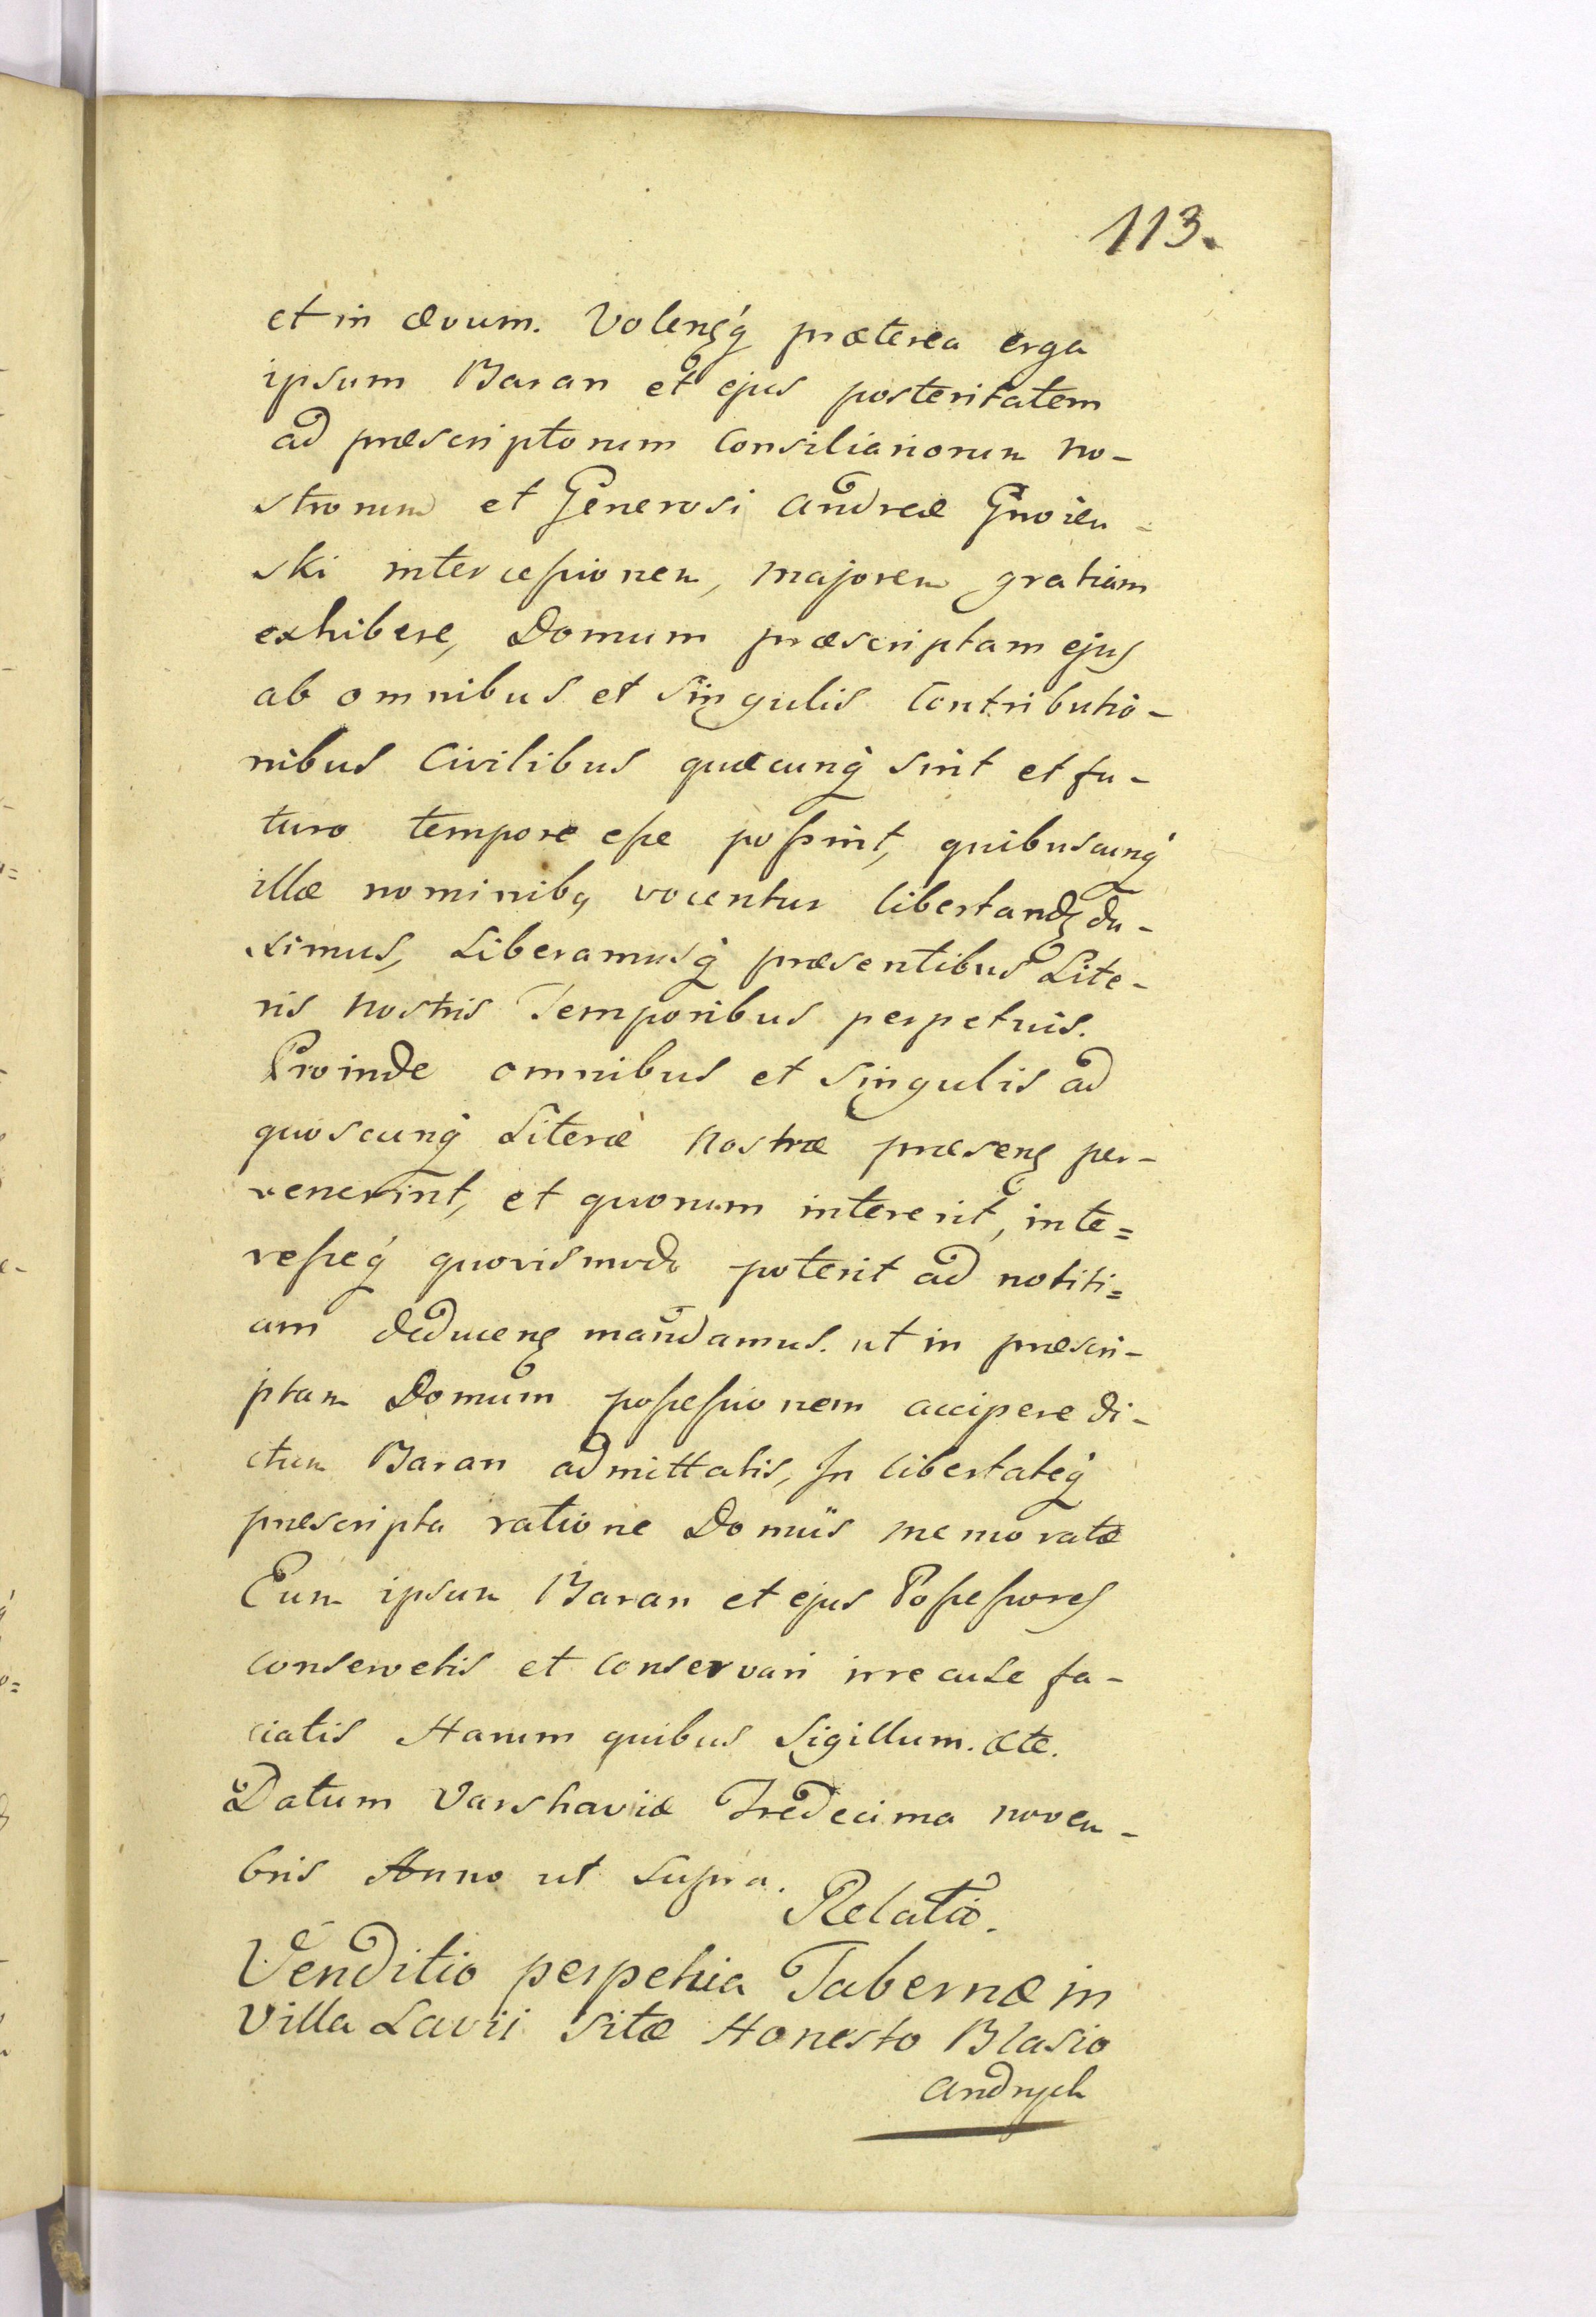 113.
et in ævum. Volensq́ præterea erga
ipsum Baran et ejus posteritatem
ad præscriptorum Consiliariorum no-
strorum et Generosi Andreæ Gnoien-
ski intercessionem, majorem gratiam
exhibere, Domum præscriptam ejus
ab omnibus et singulis Contributio-
nibus Civilibus quæcunq́ sint et fu-
turo tempore esse possint, quibuscunq́
illæ nominibq vocentur libertandɡ du-
ximus, Liberamusq́ præsentibus Lite-
ris Nostris Temporibus perpetuis.
Proinde omnibus et singulis ad
quoscunq́ Literæ Nostræ præsenɡ per-
venerint, et quorum intererit, inte=
resseq́ quovismodo poterit ad notiti=
am deducenɡ mandamus. ut in præscri-
ptam Domum possessionem accipere di-
ctum Baran admittatis, In libertateq́
præscripta ratione Domûs memoratæ
Eum ipsum Baran et ejus Possessores
conservetis et conservari irrecuse fa-
ciatis Harum quibus Sigillum. etc.
Datum Varshaviæ Tredecima novem-
bris Anno ut supra.
Relatio.
Venditio perpetua Tabernæ in
Villa Lavii sitæ Honesto Blasio
Andrych